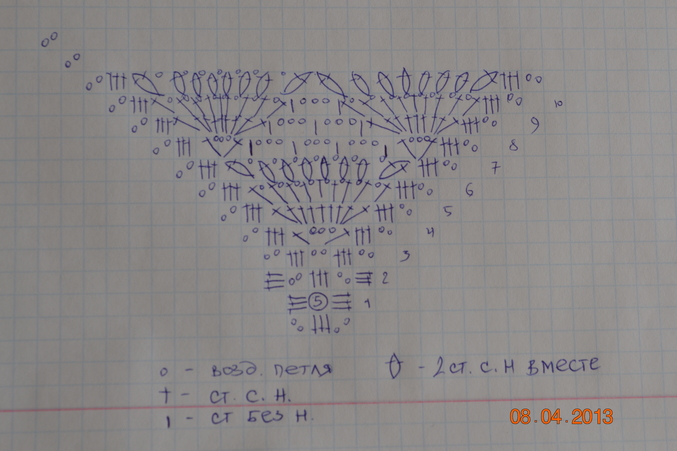 10
9
8
7
6
5
4
3
2
5 1
о - возд. петля
† - ст. с. н.
ı - ст без н.
- 2 ст. с. н вместе
08.04.2013